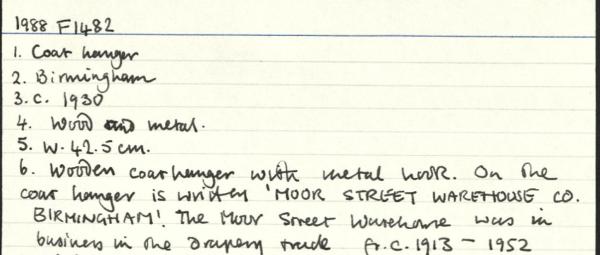 1988 F1482
1. Coat hanger
2. Birmingham
3. c. 1930
4. Wood and metal.
5. W. 42.5cm.
6. Wooden coathanger with metal hook. On the
coat hanger is written 'MOOR STREET WAREHOUSE CO.
BIRMINGHAM'. The Moor Street Warehouse was in
business in the drapery trade fr. c. 1913 - 1952